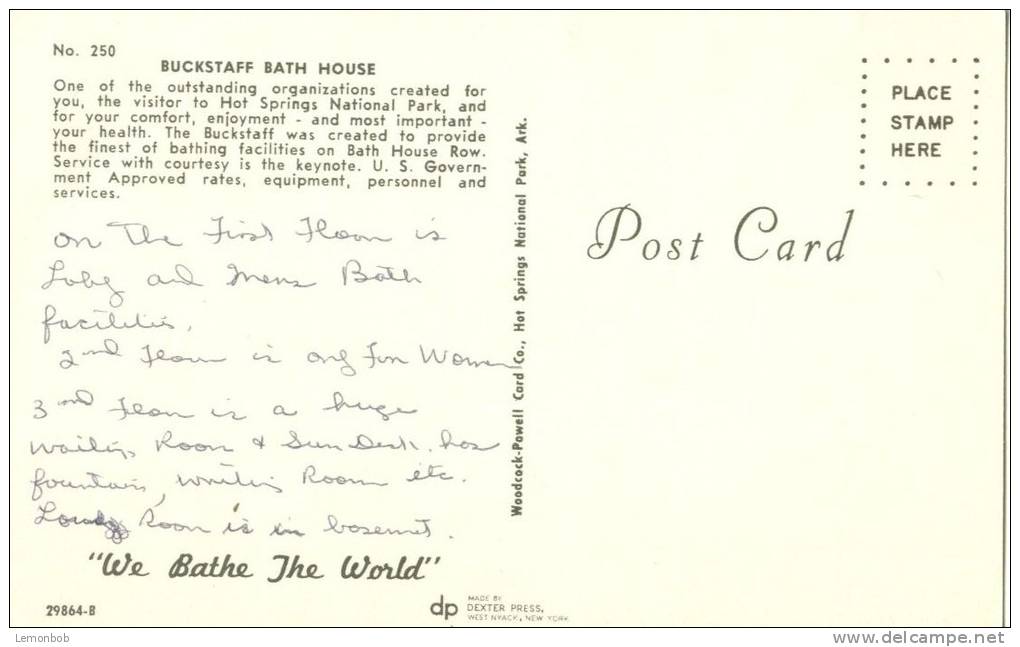 No. 250
BUCKSTAFF BATH HOUSE
One of the outstanding organizations created for
you, the visitor to Hot Springs National Park, and
for your comfort, enjoyment - and most important -
your health. The Buckstaff was created to provide
the finest of bathing facilities on Bath House Row.
Service with courtesy is the keynote. U. S. Govern-
ment Approved rates, equipment, personnel and
services.
on The First Floor is
Loby and Mens Bath
facilities,
2nd Floor is only For Women
3rd Floor is a huge
waiting Room & Sun Desk. has
fountain, writing Room etc.
Room is in basemnt.
"We Bathe The World"
29864-B
dp MADE BY
DEXTER PRESS,
WEST NYACK, NEW YORK
Woodcock-Powell Card Co., Hot Springs National Park, Ark.
PLACE
STAMP
HERE
Post Card
Lemonbob
www.delcampe.net